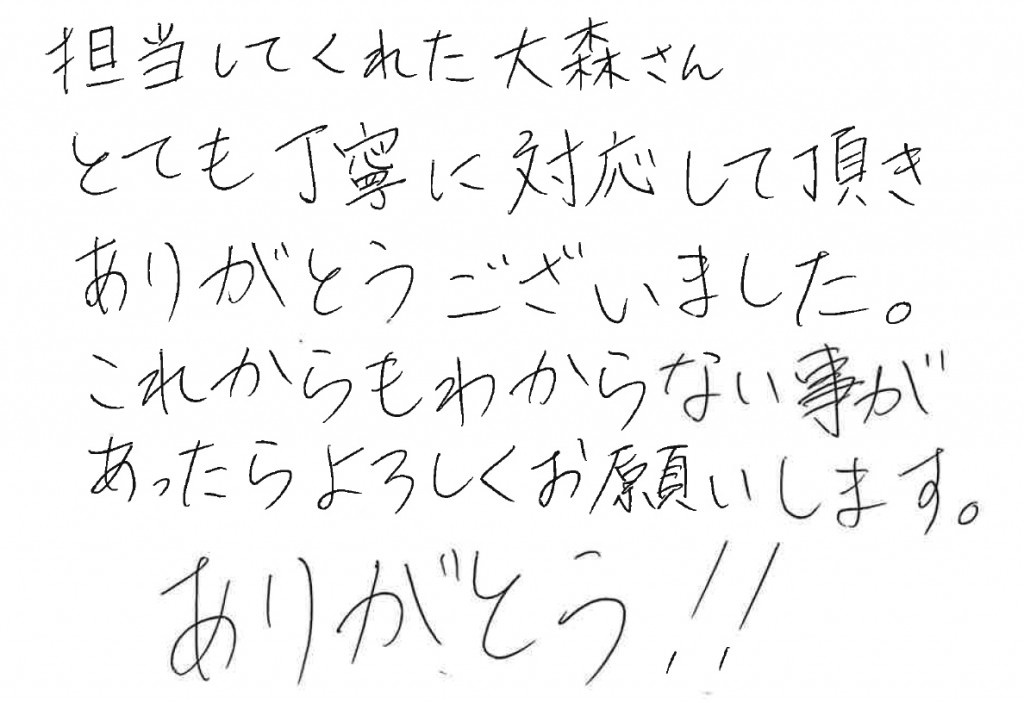 担当してくれた大森さん
とても丁寧に対応して頂き
ありがとうございました。
これからもわからない事が
あったらよろしくお願いします。
ありがとう!!